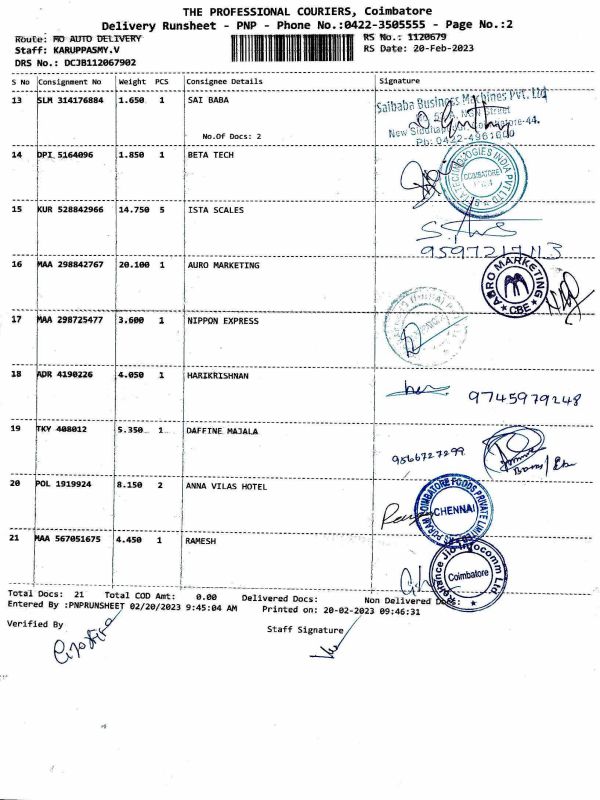 THE PROFESSIONAL COURIERS, Coimbatore
Delivery Runsheet - PNP - Phone No.:0422-3505555 - Page No.:2
Route: MO AUTO DELIVERY
RS No.: 1120679
Staff: KARUPPASMY.V
RS Date: 20-Feb-2023
DRS No.: DCJB112067902
S No Consignment No Weight PCS Consignee Details Signature
13 SLM 314176884 1.650 1 SAI BABA
Saibaba Business Machines Pvt. Ltd
New Coimbatore-44.
Ph: 0422-4961600
No.Of Docs: 2
14 DPI 5164096 1.850 1 BETA TECH
BETA TECHNOLOGIES INDIA PVT LTD
COIMBATORE
15 KUR 528842966 14.750 5 ISTA SCALES
16 MAA 298842767 20.100 1 AURO MARKETING
AURO MARKETING
CBE
17 MAA 298725477 3.600 1 NIPPON EXPRESS
18 ADR 4190226 4.050 1 HARIKRISHNAN
9745979248
19 TKY 408012 5.350 1 DAFFINE MAJALA
9566727299
20 POL 1919924 8.150 2 ANNA VILAS HOTEL
COIMBATORE FOODS PRIVATE LIMITED
CHENNAI
21 MAA 567051675 4.450 1 RAMESH
Reliance Jio Infocomm Ltd
Coimbatore
Total Docs: 21 Total COD Amt: 0.00 Delivered Docs: Non Delivered Docs:
Entered By :PNPRUNSHEET 02/20/2023 9:45:04 AM Printed on: 20-02-2023 09:46:31
Verified By
Staff Signature